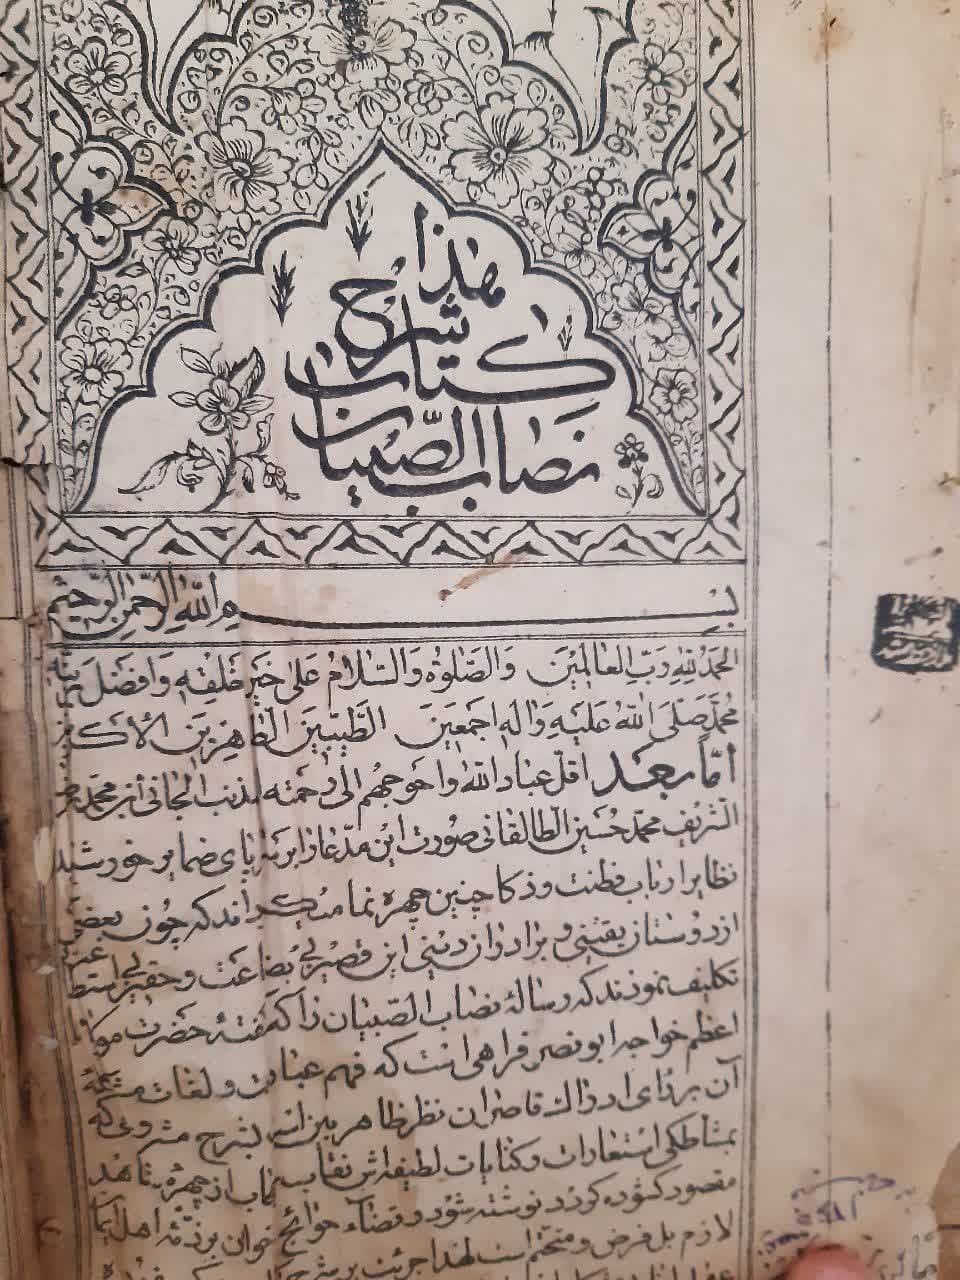 هذا
شرح
كتاب
نصاب الصبيان
بسم الله الرحمن الرحيم
الحمد لله رب العالمين والصلوة والسلام على خير خلقه وافضل بريته
محمد صلى الله عليه واله اجمعين الطيبين الطاهرين الاكرمين
اما بعد اقل عباد الله واحوجهم الى رحمته المذنب الجانى ابن محمد
الشريف محمد حسين الطالقانى صورت اين مدعا را بر راى ضماير خورشيد
نظاير ارباب فطنت وذكا چنين چهره نما ميكرداند كه چون بعضى
از دوستان يقينى و برادران دينى اين فقير بى بضاعت و حقير بى استطاعت
تكليف نمودند كه رسالهٔ نصاب الصبيان را كه كفتهٔ حضرت مولانا
اعظم خواجه ابو نصر فراهى است كه فهم عبارت ولغات مشكلهٔ
آن بر راى ادراك قاصران نظر ظاهر بين است بشرح مشروحى كه
بمشاطكى استعارات وكنايات لطيفه اش نقاب از چهرهٔ شاهد
مقصود كشوده كردد نوشته شود و قضاء حوائج اخوان بر ذمهٔ اهل ايمان
لازم بل فرض ومتحتم است لهذا جرئت بر شرح